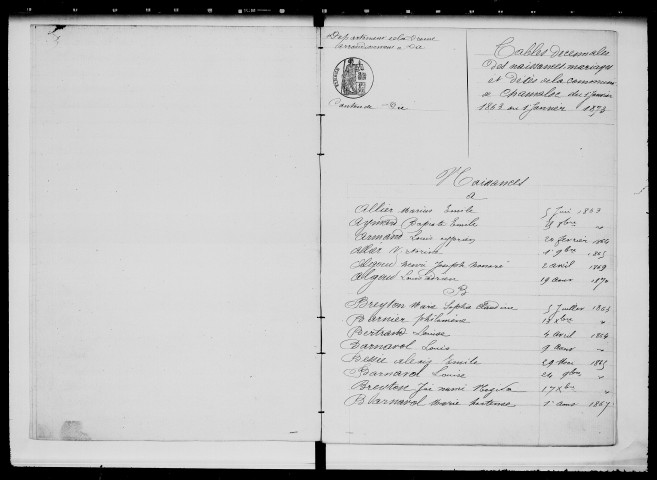 Département de la Drome
Arrondissement de Die
Canton de Die
Tables Décennales
Des naissances mariages
et Décès de la Commune
de Chamaloc du 1 Janvier
1863 au 1 Janvier 1873
Naissances
A
Allier Marius Emile 5 Juin 1863
Aymard Baptiste Emile 8bre "
Armand Louis Cyprien 20 février 1864
1er 9bre 1865
Algoud Henri Joseph Honoré 2 avril 1869
Algoud Louis Adrien 19 aout 1870
B
Breyton Marie Sophie Claudine 5 Juillet 1863
Barnier Philomène 13 Xbre "
Bertrand Louise 4 Avril 1864
Barnavol Louis 9 Aout "
Emile 29 Mai 1865
Barnavol Louise 24 9bre "
Breyton 17 Xbre "
Barnavol Marie Hortense 1er Aout 1867